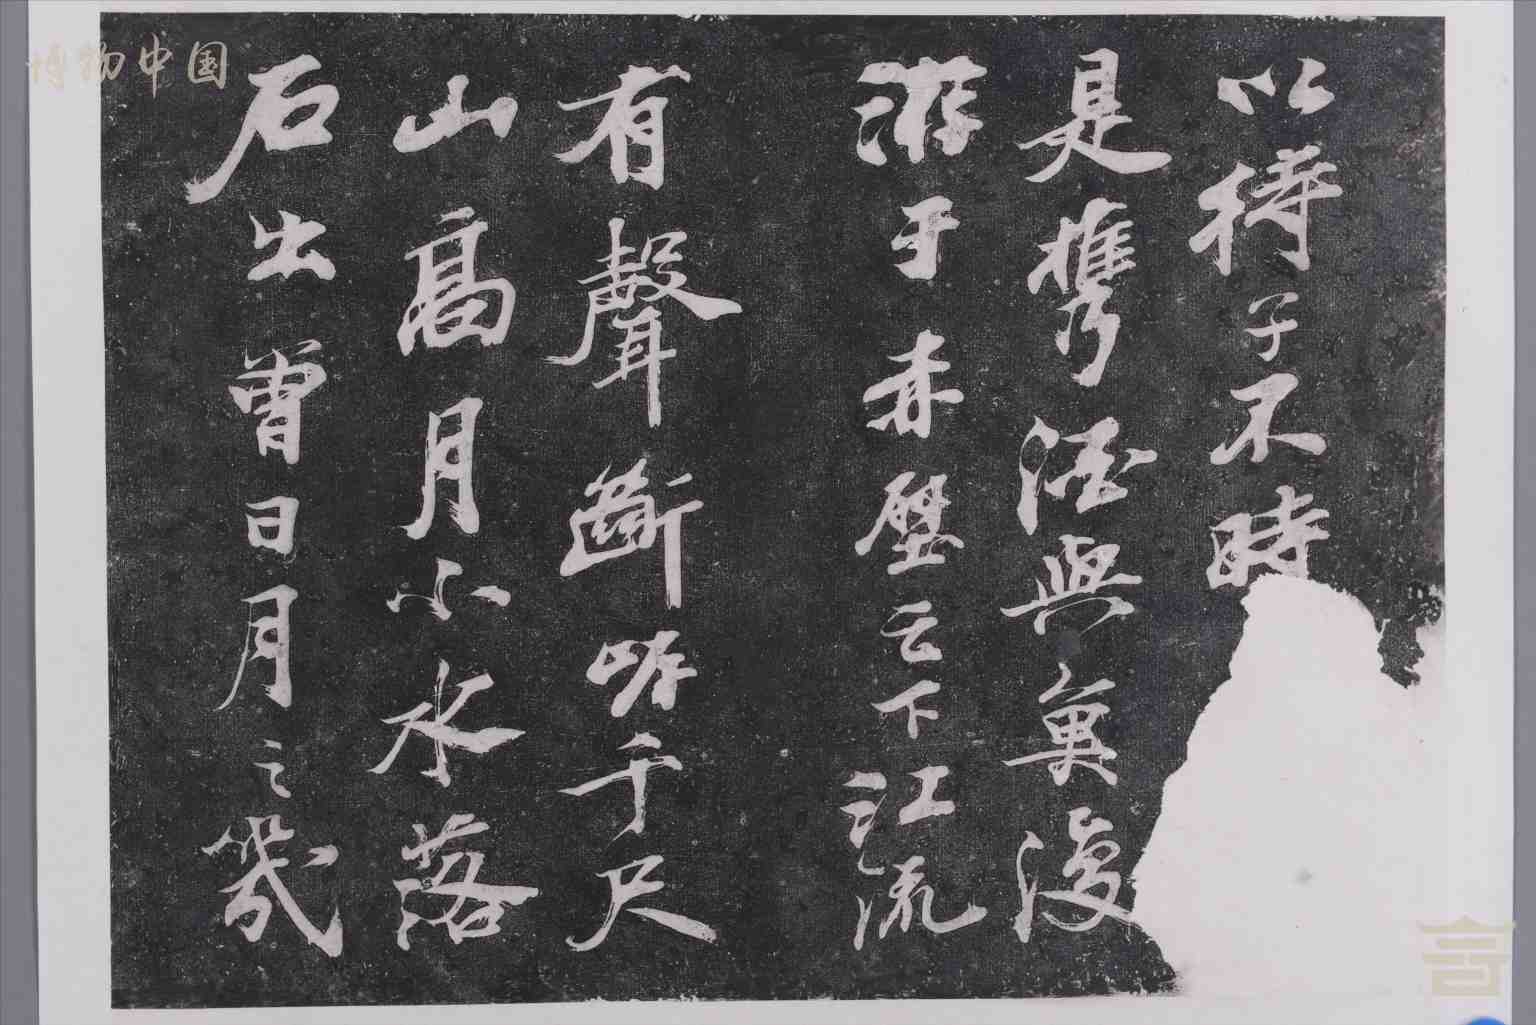 以待子不時
是攜酒與魚復
游于赤壁之下江流
有聲斷岸千尺
山高月小水落
石出曾日月之幾
博物中国